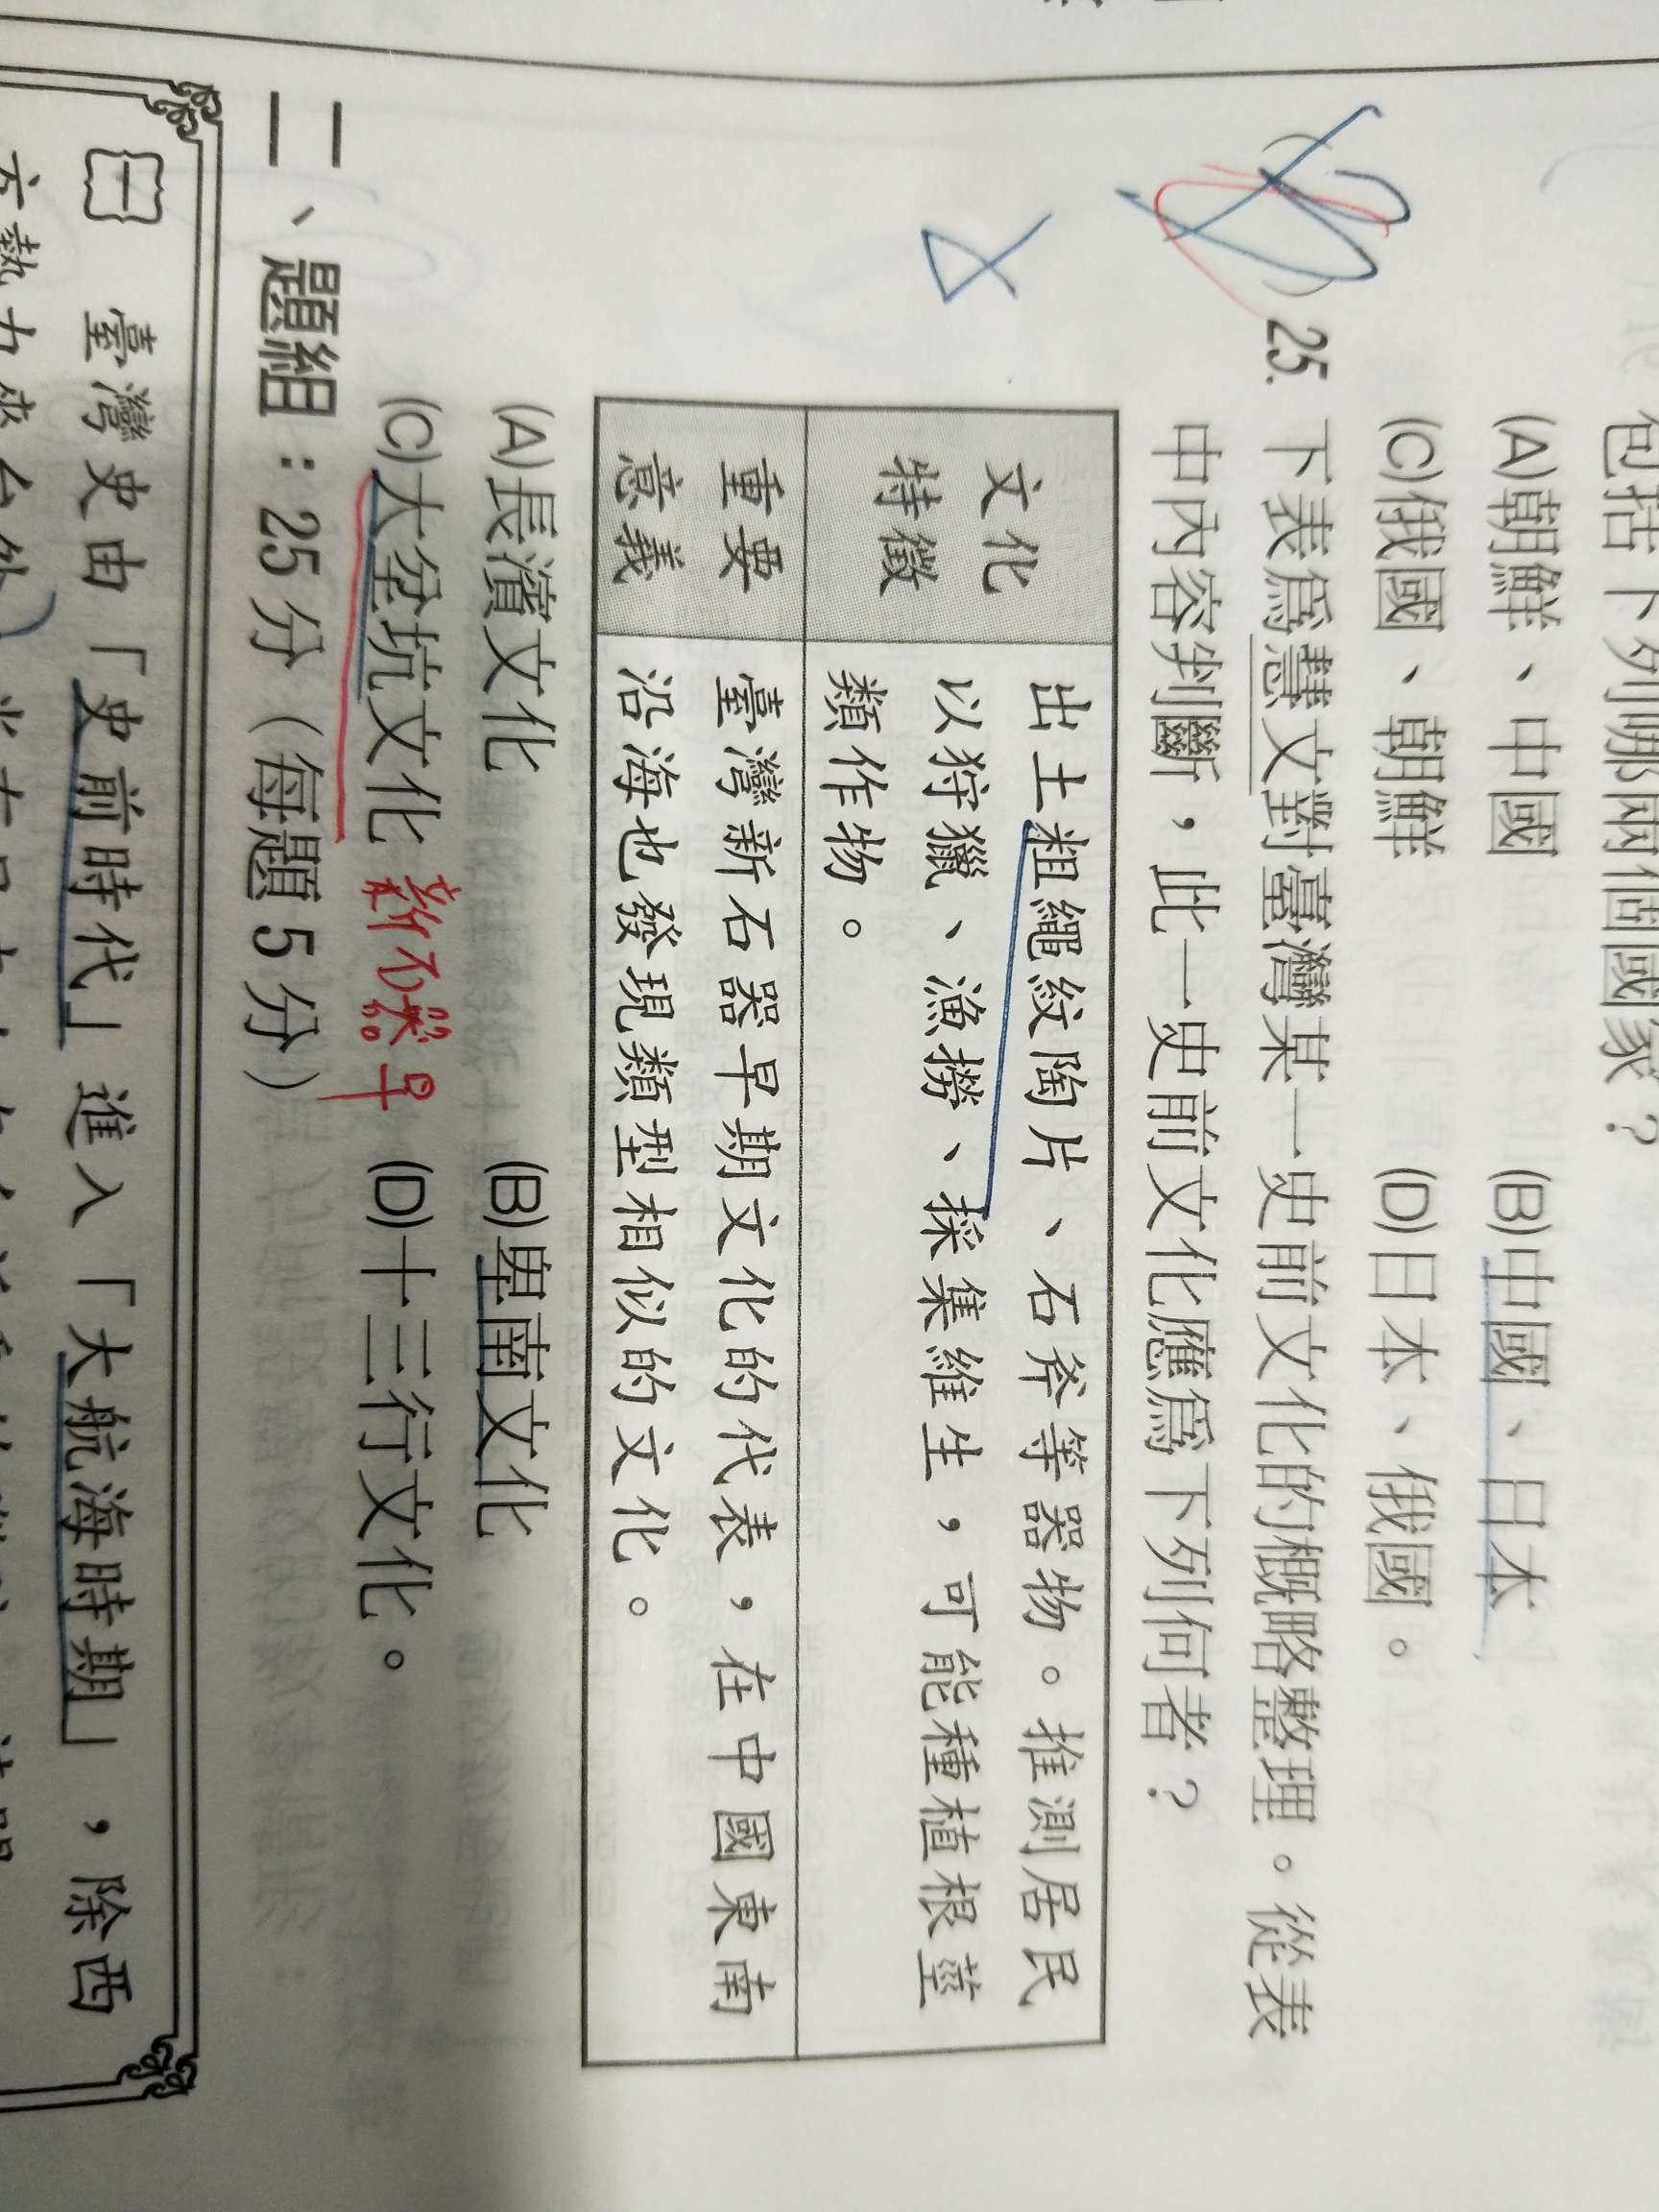 包括下列哪兩個國家？
(A)朝鮮、中國 (B)中國、日本
(C)俄國、朝鮮 (D)日本、俄國。
25. 下表爲慧文對臺灣某一史前文化的概略整理。從表
中內容判斷，此一史前文化應爲下列何者？
文化特徵
出土粗繩紋陶片、石斧等器物。推測居民
以狩獵、漁撈、採集維生，可能種植根莖
類作物。
重要意義
臺灣新石器早期文化的代表，在中國東南
沿海也發現類型相似的文化。
(A)長濱文化 (B)卑南文化
(C)大坌坑文化 新石器早 (D)十三行文化。
二、題組：25分（每題5分）
一 臺灣史由「史前時代」進入「大航海時期」，除西